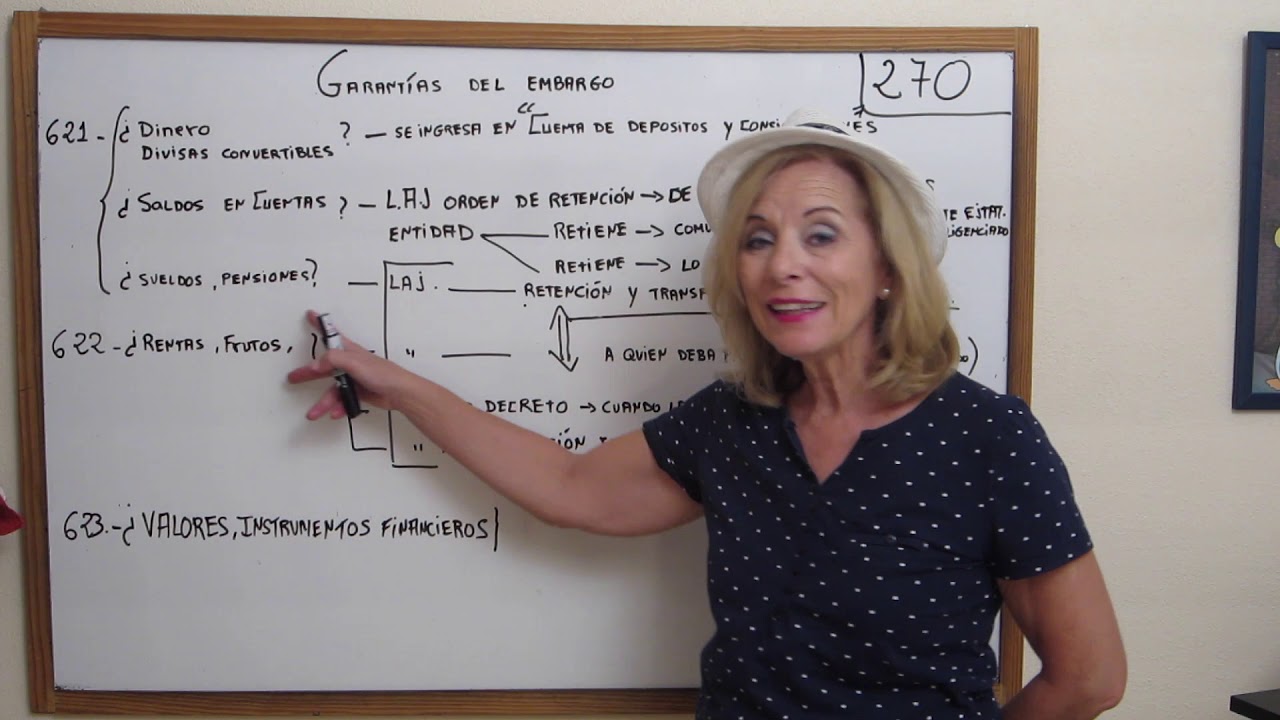 GARANTÍAS DEL EMBARGO
270
621 - ¿ DINERO
DIVISAS CONVERTIBLES ? — SE INGRESA EN "CUENTA DE DEPOSITOS Y
¿ SALDOS EN CUENTAS ? — L.A.J ORDEN DE RETENCIÓN → DE
ENTIDAD RETIENE →
ESTAT.
RETIENE → LO
¿ SUELDOS, PENSIONES? — LAJ. — RETENCIÓN Y
622 - ¿ RENTAS, FRUTOS, ? " — A QUIEN DEBA
DECRETO → CUANDO
"
623.- ¿ VALORES, INSTRUMENTOS FINANCIEROS